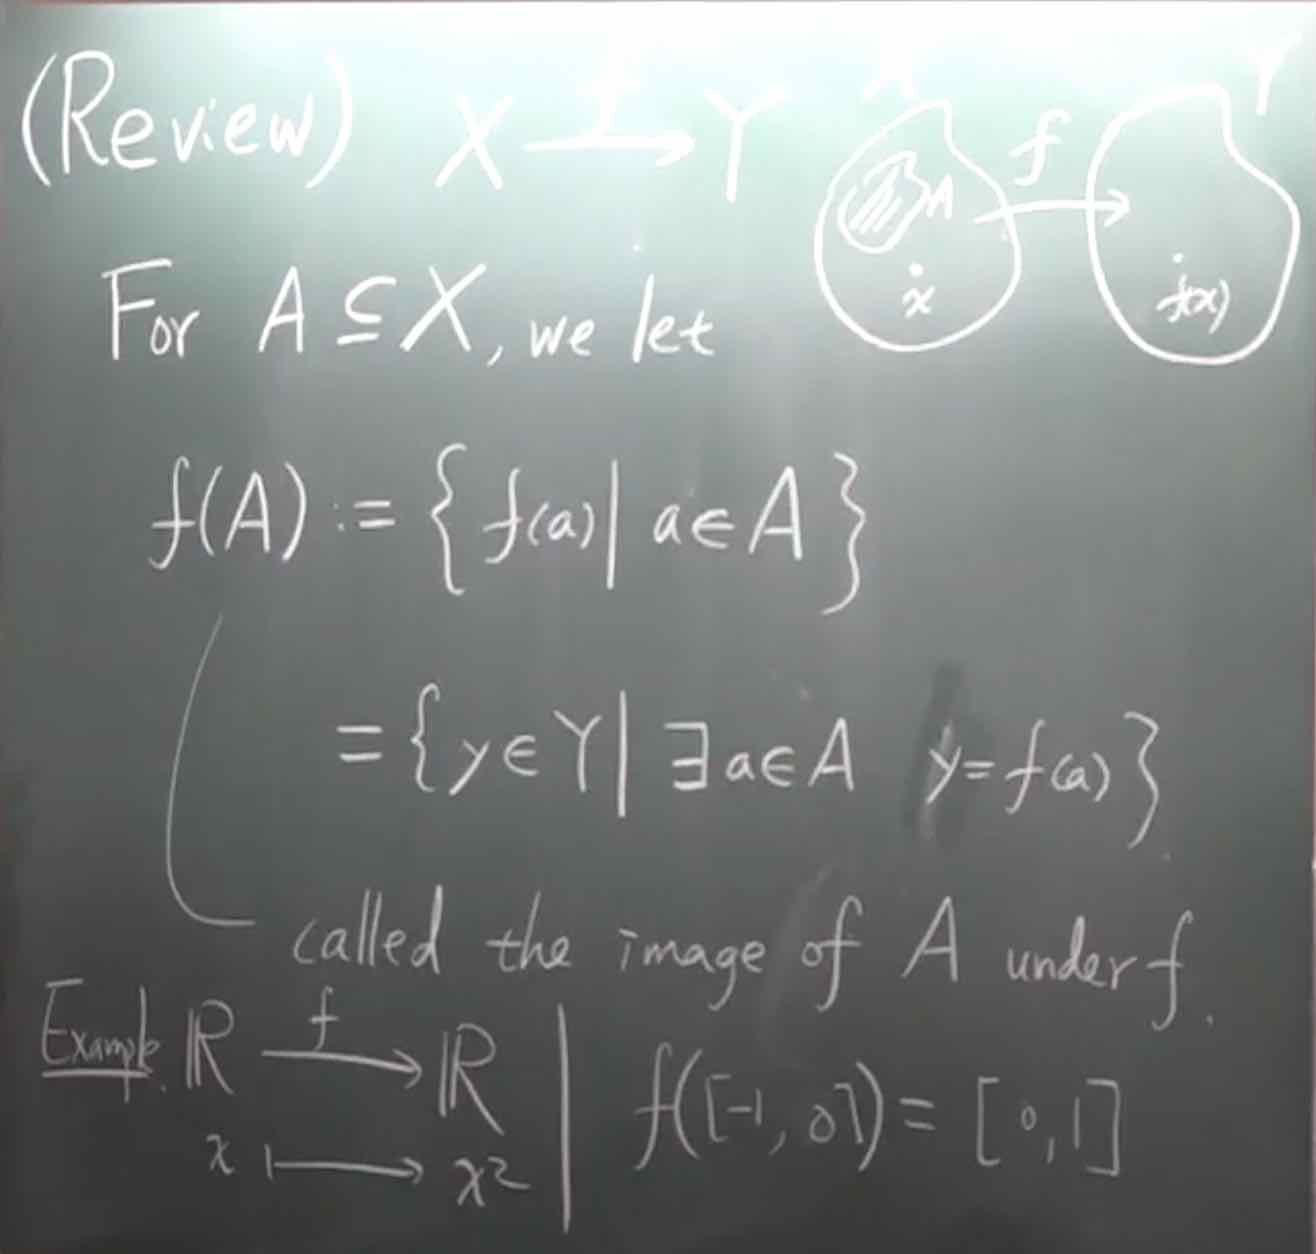 (Review) X → Y
X f Y
A
x f(x)
For A ⊆ X, we let
f(A) := { f(a) | a ∈ A }
= { y ∈ Y | ∃ a ∈ A y = f(a) }
called the image of A under f.
Example. ℝ —f→ ℝ | f([-1, 0]) = [0, 1]
x ↦ x²